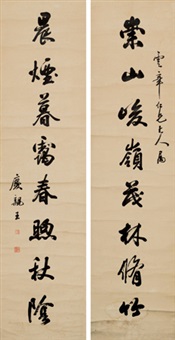 雲章仁兄大人屬
崇山峻嶺茂林脩竹
晨煙暮靄春煦秋陰
慶親王